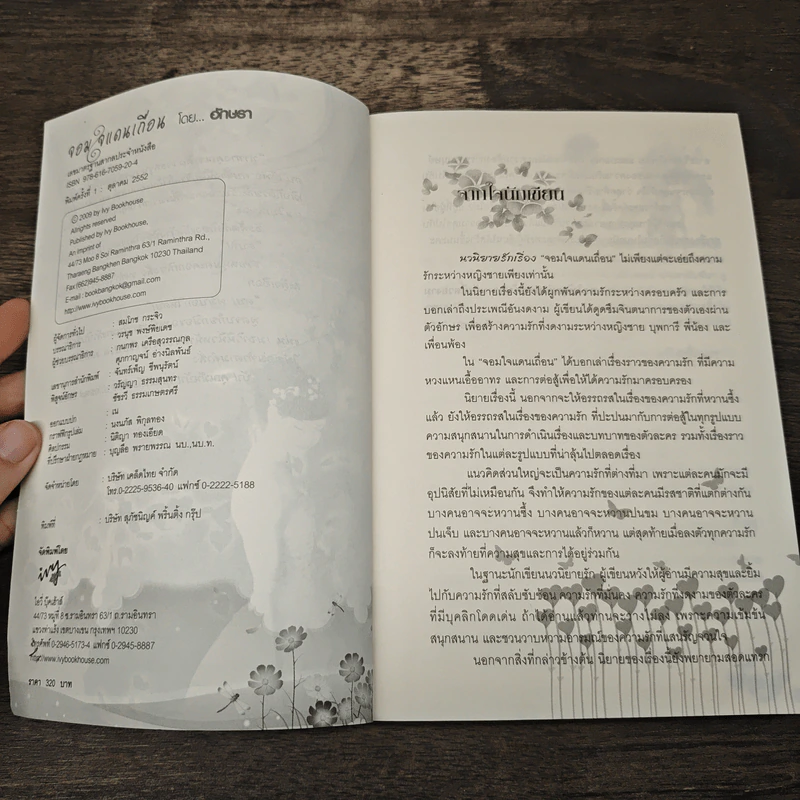 จอมใจแดนเถื่อน โดย... อักษรา
เลขมาตรฐานสากลประจำหนังสือ
ISBN 978-616-7059-20-4
พิมพ์ครั้งที่ 1 : ตุลาคม 2552
© 2009 by Ivy Bookhouse
Allrights reserved
Published by Ivy Bookhouse,
An imprint of
44/73 Moo 8 Soi Raminthra 63/1 Raminthra Rd.,
Tharaeng Bangkhen Bangkok 10230 Thailand
Fax (662)945-8887
E-mail : bookbangkok@gmail.com
http://www.ivybookhouse.com
ผู้จัดการทั่วไป : สมโภช กระจิว
บรรณาธิการ : วรนุช พงษ์พิยเดช
ผู้ช่วยบรรณาธิการ : กนกพร เครือสุวรรณกุล
ศุภกาญจน์ อ่างนิลพันธ์
เลขานุการสำนักพิมพ์ : จันทร์เพ็ญ ชีพนุรัตน์
พิสูจน์อักษร : วรัญญา ธรรมสุนทร
ชัชรวี ธรรมเกษตรศรี
ออกแบบปก : เน
กราฟฟิกรูปเล่ม : นงนภัส พิกุลทอง
ศิลปกรรม : นิติญา ทองเอียด
ที่ปรึกษาฝ่ายกฎหมาย : บุญลือ พรายพรรณ นบ.,นบ.ท.
จัดจำหน่ายโดย : บริษัท เคล็ดไทย จำกัด
โทร.0-2225-9536-40 แฟกซ์ 0-2222-5188
พิมพ์ที่ : บริษัท สุภัชนิญค์ พริ้นติ้ง กรุ๊ป
จัดพิมพ์โดย
ivy
ไอวี่ บุ๊คเฮ้าส์
44/73 หมู่ที่ 8 ซ.รามอินทรา 63/1 ถ.รามอินทรา
แขวงท่าแร้ง เขตบางเขน กรุงเทพฯ 10230
โทรศัพท์ 0-2946-5173-4 แฟกซ์ 0-2945-8887
http://www.ivybookhouse.com
ราคา 320 บาท
จากใจนักเขียน
นวนิยายรักเรื่อง "จอมใจแดนเถื่อน" ไม่เพียงแต่จะเอ่ยถึงความ
รักระหว่างหญิงชายเพียงเท่านั้น
ในนิยายเรื่องนี้ยังได้ผูกพันความรักระหว่างครอบครัว และการ
บอกเล่าถึงประเพณีอันงดงาม ผู้เขียนได้ดูดซึมจินตนาการของตัวเองผ่าน
ตัวอักษร เพื่อสร้างความรักที่งดงามระหว่างหญิงชาย บุพการี พี่น้อง และ
เพื่อนพ้อง
ใน "จอมใจแดนเถื่อน" ได้บอกเล่าเรื่องราวของความรัก ที่มีความ
หวงแหนเอื้ออาทร และการต่อสู้เพื่อให้ได้ความรักมาครอบครอง
นิยายเรื่องนี้ นอกจากจะให้อรรถรสในเรื่องของความรักที่หวานซึ้ง
แล้ว ยังให้อรรถรสในเรื่องของความรัก ที่ปะปนมากับการต่อสู้ในทุกรูปแบบ
ความสนุกสนานในการดำเนินเรื่องและบทบาทของตัวละคร รวมทั้งเรื่องราว
ของความรักในแต่ละรูปแบบที่น่าลุ้นไปตลอดเรื่อง
แนวคิดส่วนใหญ่จะเป็นความรักที่ต่างที่มา เพราะแต่ละคนมักจะมี
อุปนิสัยที่ไม่เหมือนกัน จึงทำให้ความรักของแต่ละคนมีรสชาติที่แตกต่างกัน
บางคนอาจจะหวานซึ้ง บางคนอาจจะหวานปนขม บางคนอาจจะหวาน
ปนเจ็บ และบางคนอาจจะหวานแล้วก็หวาน แต่สุดท้ายเมื่อลงตัวทุกความรัก
ก็จะลงท้ายที่ความสุขและการได้อยู่ร่วมกัน
ในฐานะนักเขียนนวนิยายรัก ผู้เขียนหวังให้ผู้อ่านมีความสุขและยิ้ม
ไปกับความรักที่สลับซับซ้อน ความรักที่มั่นคง ความรักที่งดงามของตัวละคร
ที่มีบุคลิกโดดเด่น ถ้าได้อ่านแล้วท่านจะวางไม่ลง เพราะความเข้มข้น
สนุกสนาน และชวนวาบหวามอารมณ์ของความรักที่แสนรัญจวนใจ
นอกจากสิ่งที่กล่าวข้างต้น นิยายของเรื่องนี้ยังพยายามสอดแทรก